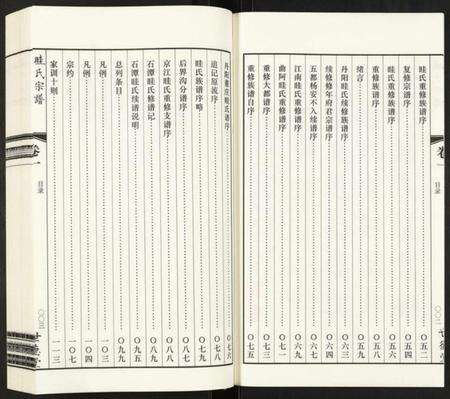 眭氏重修族谱序 〇五二
复修宗谱序 〇五四
眭氏重修族谱序 〇五五
重修族谱序 〇五八
绪言 〇五九
丹阳眭氏续修族谱序 〇六三
续修修年府君宗谱序 〇六四
五都杨安不入续谱序 〇六七
江南眭氏重修谱序 〇六九
曲阿眭氏重修谱序 〇七一
重修大都谱序 〇七三
重修族谱自序 〇七五
卷一
目录
丹阳重立眭氏谱序 〇七六
追记原流序 〇七七
眭氏族谱序略 〇七八
后界沟分谱序 〇八七
京江眭氏重修支谱序 〇八八
石潭眭氏修谱记 〇八九
石潭眭氏续谱说明 〇九九
总列条目 〇九九
凡例 一〇三
凡例 一〇四
宗约 一〇七
家训十则 一一三
眭氏宗谱
卷一
目录
〇〇三